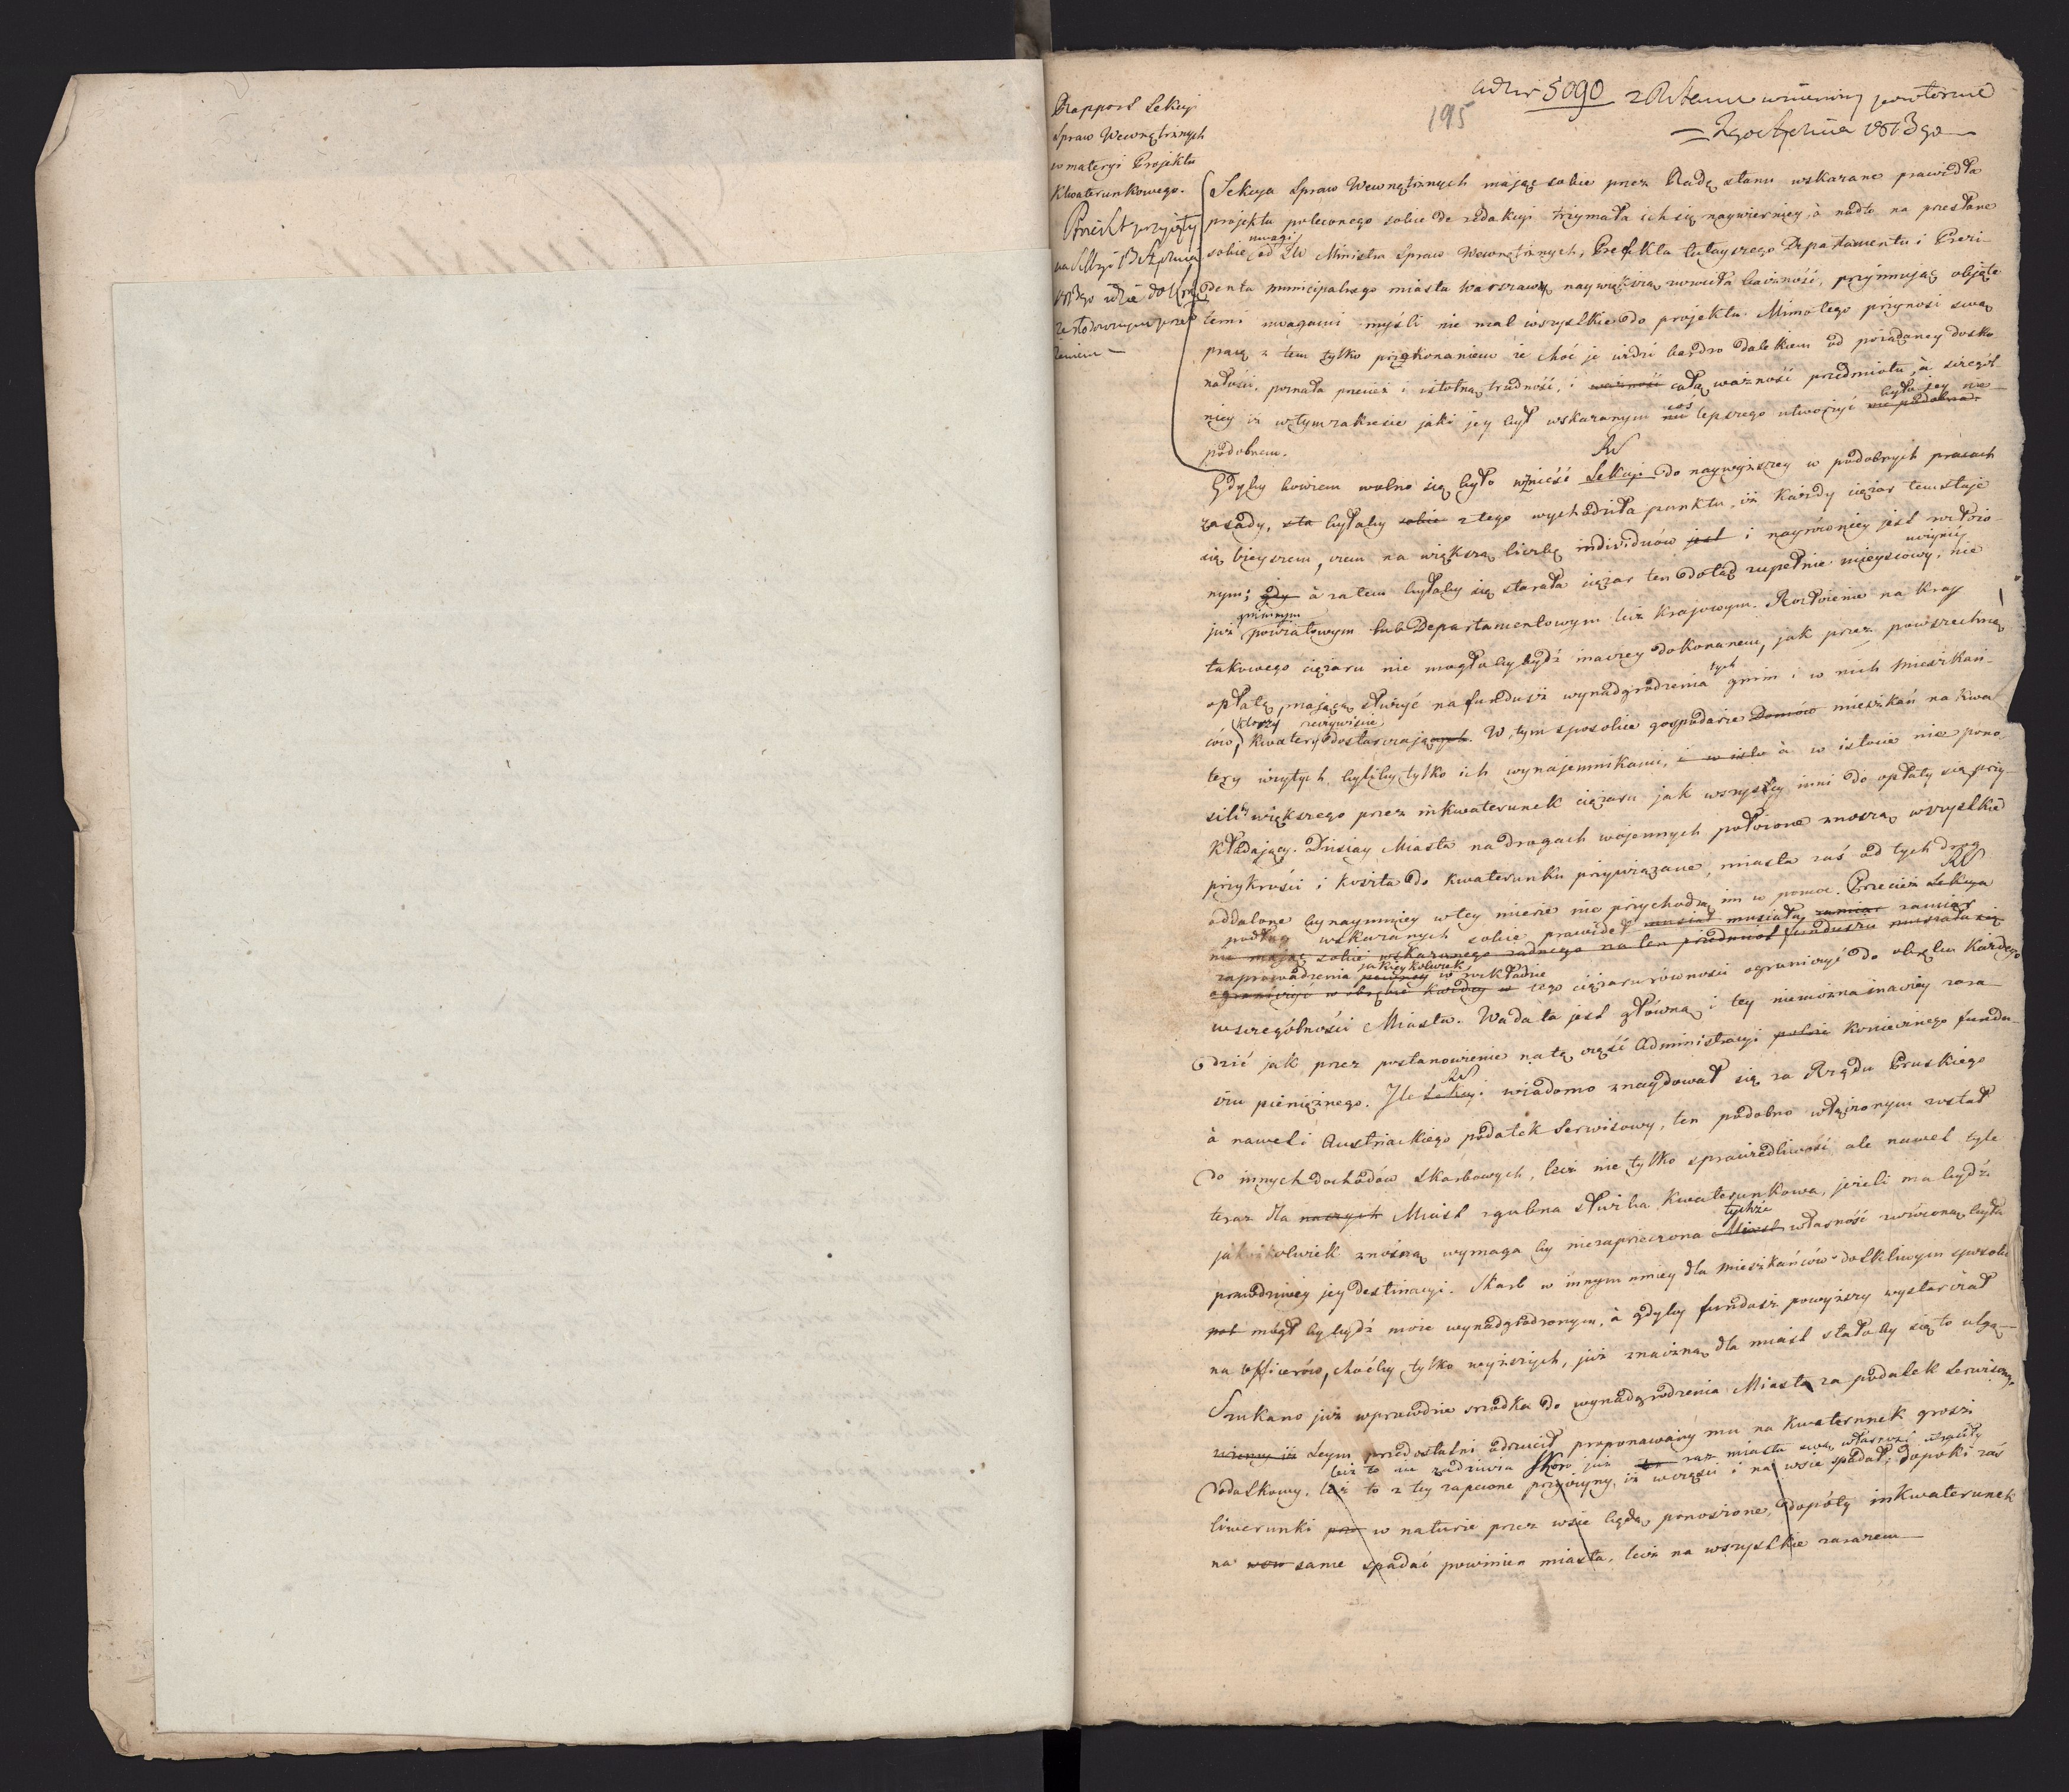 ad Nr 5090
195
2go Stycznia 1813 go
Rapport Sekcyi
Spraw Wewnętrznych
w materyi Projektu
Kwaterunkowego.
Proiekt przyięty
na Sessyi 13 Stycznia
1813go idzie do Króla
Sekcya Spraw Wewnętrznych mając sobie przez Radę stanu wskazane prawidła
projektu poleconego sobie do redakcyi trzymała ich się naywierniey, à nadto na przesłane
sobie uwagi od JW Ministra Spraw Wewnętrznych, Prefekta tuteyszego Departamentu i Prezi-
denta municipalnego miasta Warszawy naywiększą zwróciła baczność, przyimując objęte
temi uwagami myśli nie mal wszystkie do projektu. Mimo tego przynosi swą
pracę z tem tylko przekonaniem że choć je widzi bardzo dalekiem od pożądaney dosko
nałości, poznała przecież i istotną trudność, i ważność całą ważność przedmiotu, à szczegól
niey iż w tym zakresie jaki jey był wskazanym coś lepszego utworzyć było jey nie-
podobnem.
Gdyby bowiem wolno się było wznieść Sekcyi RS do naywyższey w podobnych pracach
zasady, sta byłaby sobie z tego wychodziła punktu, iż każdy ciężar tem staje
się lżeyszem, czem na większą liczbę individuów jest i nayrówniey jest włożo-
nym; gdy à zatem byłaby się starała ciężar ten dotąd zupełnie mieyscowy, uczynić nie
już gminnym powiatowym lub Departamentowym lecz krajowym. Rozłożenie na Kray
takowego ciężaru nie mogłoby bydź inaczey dokonanem, jak przez powszechną
opłatę, mającą służyć na fundusz wynadgrodzenia tych gmin i w nich mieszkań-
ców, którzy rzeczywiście kwatery dostarczają. W tym sposobie gospodarze Domów mieszkań na kwa
tery wziętych byliby tylko ich wynajemnikami, i w isto à w istocie nie pono
siliby większego przez inkwaterunek ciężaru jak wszyscy inni do opłaty się przy-
kładający. Dzisiay Miasta na drogach wojennych położone znoszą wszystkie
przykrości i koszta do kwaterunku przywiązane, miasta zaś od tych drog
oddalone bynaymniey w tey mierze nie przychodzą im w pomoc. Przecież Sekcya RS
podług wskazanych sobie prawideł musiał musiała zamiar zamiar
nie mając sobie wskazanego żadnego na ten przedmiot funduszu musiała się
zaprowadzenia pewney jakieykolwiek w rozkładzie
ograniczyć w obrębie każdey w tego ciężaru równości ograniczyć do obrębu każdego
w szczególności Miasta. Wada ta jest główną i tey niemożna inaczey zara
dzić jak przez postanowienie na tę część Administracyi koniecznego fundu-
szu pieniężnego. Ile Sekcyi RS wiadomo znaydował się za Rządu Pruskiego
à nawet i Austriackiego podatek Serwisowy, ten podobno włączonym został
do innych dochodów Skarbowych, lecz nie tylko sprawiedliwość ale nawet tyle
teraz dla naszych Miast zgubna służba kwaterunkowa, jeżeli ma bydź
jakożkolwiek znośną, wymaga by niezaprzeczona Miast tychże własność zwróconą była
prawdziwey jey destinacyi. Skarb w innym mniey dla mieszkańców dotkliwym sposobie
mógł by bydź może wynadgrodzonym, à gdyby fundusz powyższy wystarczał
na officerów, choćby tylko wyższych, już znaczną dla miast stałoby się to ulgą.
Szukano już wprawdzie srzodka do wynadgrodzenia Miasta za podatek Serwisowy,
Seym przedostatni odrzucił proponowany mu na kwaterunek groszi
lecz to nie zadziwia skoro już raz miasta swą własność utraciły
dodatkowy. lecz to z tey zapewne przyczyny, iż w części i na wsie spadał; dopoki zaś
liwerunki w naturze przez wsie będą ponoszone, dopóty inkwaterunek
na same spadać powinien miasta, lecz na wszystkie zarazem